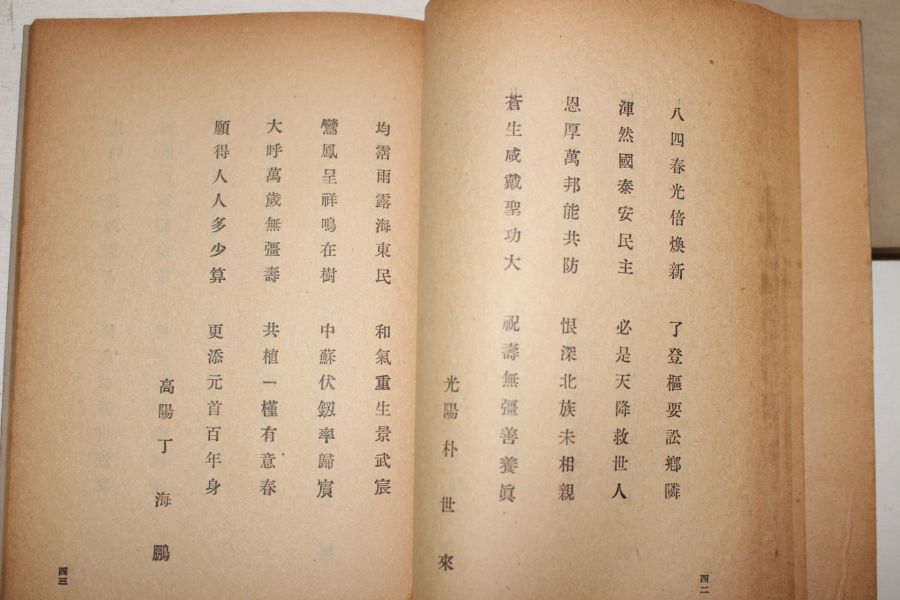 八四春光倍煥新　了登樞要訟鄉隣
渾然國泰安民主　必是天降救世人
恩厚萬邦能共防　恨深北族未相親
蒼生咸戴聖功大　祝壽無彊善養眞
光陽朴世來
四二
均霑雨露海東民　和氣重生景武宸
鸞鳳呈祥鳴在樹　中蘇伏劔率歸賓
大呼萬歲無彊壽　共植一槿有意春
願得人人多少算　更添元首百年身
高陽丁海鵬
四三